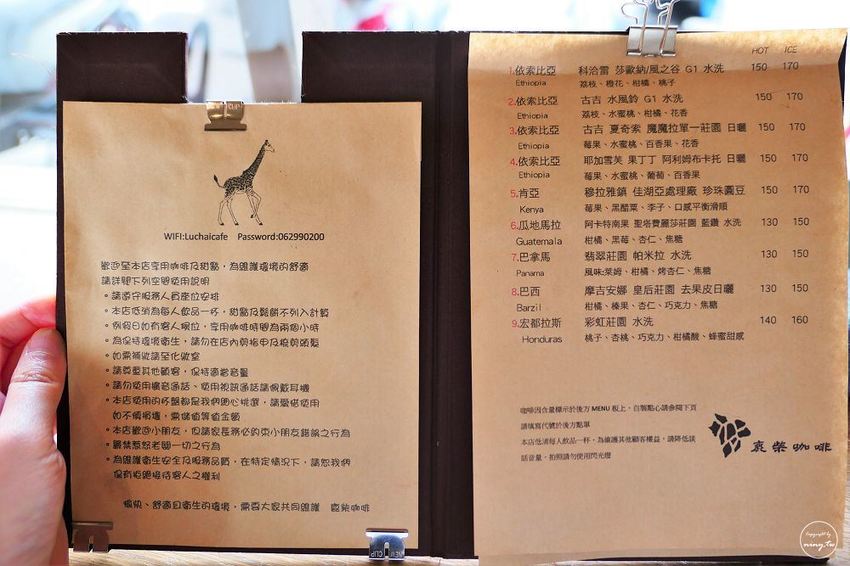 WIFI:Luchaicafe Password:062990200
歡迎至本店享用咖啡及甜點，為維護環境的舒適
請詳閱下列空間使用說明
•請遵守服務人員座位安排
•本店低消為每人飲品一杯，甜點及鬆餅不列入計算
•例假日如有客人候位，享用咖啡時間為兩個小時
•為保持環境衛生，請勿在店內剪指甲及梳剪頭髮
•如需補妝請至化妝室
•請尊重其他顧客，保持適當音量
•請勿使用擴音通話、使用視訊通話請佩戴耳機
•本店使用的杯盤都是我們用心挑選，請愛惜使用
如不慎損壞，需儲值等值金額
•本店歡迎小朋友，但請家長務必約束小朋友錯誤之行為
•嚴禁惹怒老闆一切之行為
•為維護衛生安全及服務品質，在特定情況下，請恕我們
保有拒絕接待客人之權利
愉快、舒適且衛生的環境，需要大家共同維護 鹿柴咖啡
HOT ICE
1.依索比亞 科洽雷 莎歐納/風之谷 G1 水洗 150 170
Ethiopia 荔枝、橙花、柑橘、桃子
2.依索比亞 古吉 水風鈴 G1 水洗 150 170
Ethiopia 荔枝、水蜜桃、柑橘、花香
3.依索比亞 古吉 夏奇索 魔魔拉單一莊園 日曬 150 170
Ethiopia 莓果、水蜜桃、百香果、花香
4.依索比亞 耶加雪芙 果丁丁 阿利姆布卡托 日曬 150 170
Ethiopia 莓果、水蜜桃、葡萄、百香果
5.肯亞 穆拉雅鎮 佳湖亞處理廠 珍珠圓豆 150 170
Kenya 莓果、黑醋栗、李子、口感平衡滑順
6.瓜地馬拉 阿卡特南果 聖塔費麗莎莊園 藍鑽 水洗 130 150
Guatemala 柑橘、黑莓、杏仁、焦糖
7.巴拿馬 翡翠莊園 帕米拉 水洗 130 150
Panama 風味:萊姆、柑橘、烤杏仁、焦糖
8.巴西 摩吉安娜 皇后莊園 去果皮日曬 130 150
Barzil 柑橘、榛果、杏仁、巧克力、焦糖
9.宏都拉斯 彩虹莊園 水洗 140 160
Honduras 桃子、杏桃、巧克力、柑橘酸、蜂蜜甜感
咖啡因含量標示於後方 MENU 板上，自製點心請參閱下頁
請填寫代號於後方點單
本店低消每人飲品一杯，為維護其他顧客權益，請降低談
話音量，拍照請勿使用閃光燈
鹿柴咖啡
VIEW CLIP
Copyright by
niny.tw